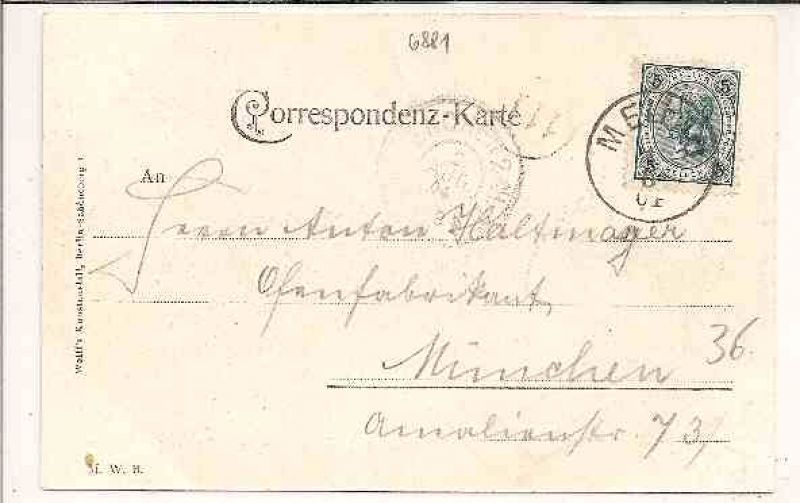 6881
Correspondenz-Karte
5 5
5 5
ME
01
An
Herrn Anton Haltmayer
Ofenfabrikant,
München 36.
Amalienstr. 73,
Wolff's Kunstanstalt, Berlin-Schöneberg 1.
M. W. B.